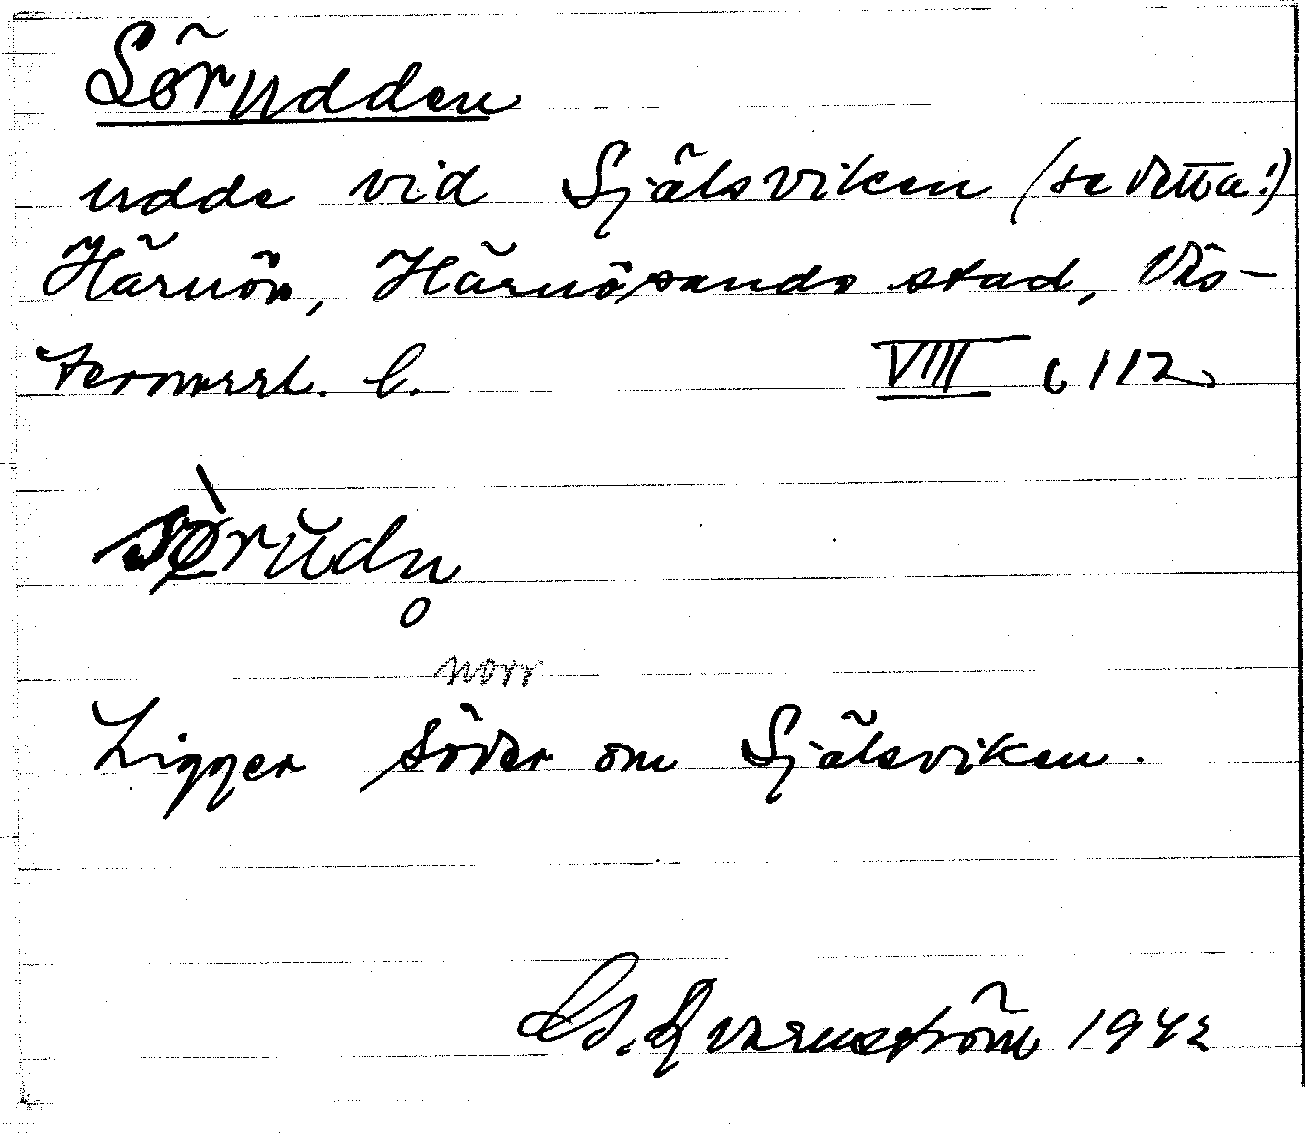 Sörudden
udde vid Själsviken (se detta!)
Härnön, Härnösands stad, Väs-
ternorrl. l.
VIII 6 112
sø̀rŭdn̥
norr
Ligger söder om Själsviken.
Qvarnström 1942